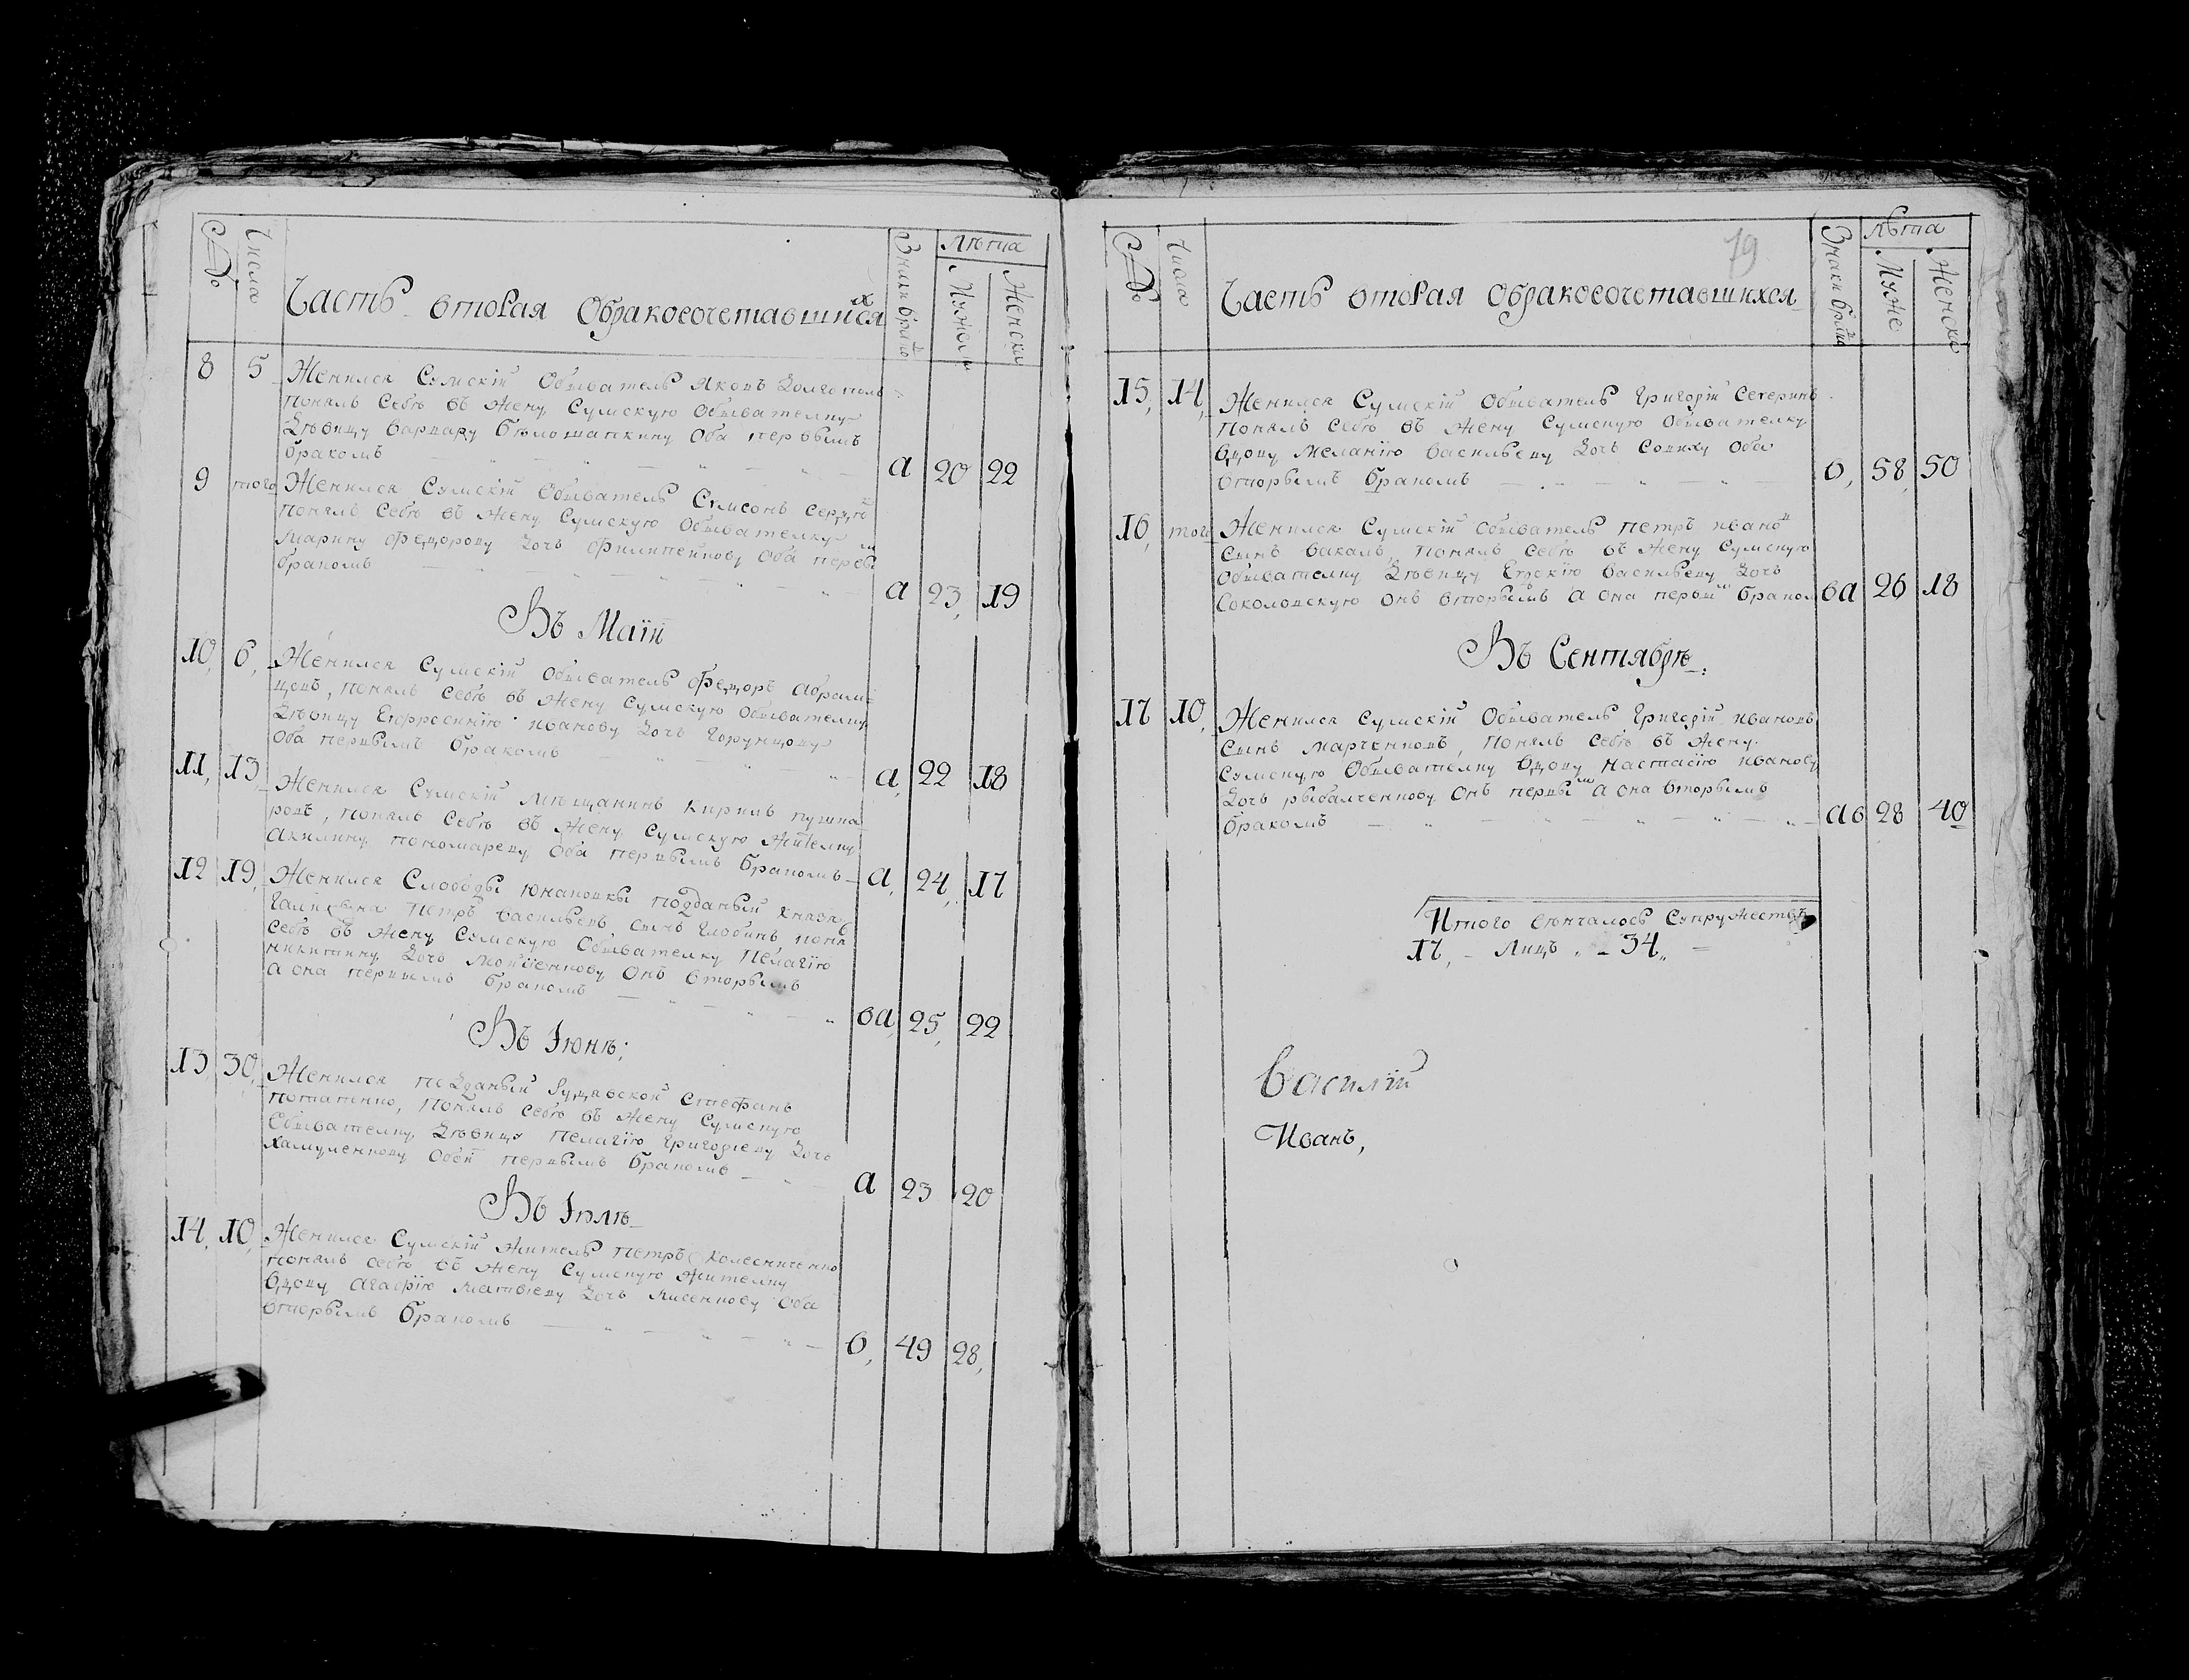 Число
Часть вторая Обракосочетавшихся
Знаки брака
Лѣта
Мужеск
Женска
8 5 Женился Сумскій Обыватель Яковъ Долгополъ
Понялъ Себѣ въ Жену Сумскую Обывателку
Дѣвицу варвару бѣлошапкину Оба первымъ
бракомъ а 20 22
9 того Женился Сумскій Обыватель Сумсонъ
Понялъ Себѣ въ Жену Сумскую Обывателку
Марину федорову Дочъ филипейкову Оба первы
бракомъ а 23, 19
Въ Маіи
10, 6, Женился Сумскій Обыватель федоръ Абрам
цовъ, Понялъ Себѣ въ Жену Сумскую Обывателку
Дѣвицу Евфросинію иванову Дочъ
Оба первымъ бракомъ а, 22 18
11, 13, Женился Сумскій Мѣщанинъ кирилъ
ровъ, Понялъ Себѣ въ Жену Сумскую Жителку
Акилину пономареву Оба первымъ бракомъ а, 24, 17
12 19, Женился Слободы Юнаковки подданый князя
Галицына Петръ васильевъ Сынъ глобинъ поня
Себѣ въ Жену Сумскую Обывателку Пелагію
никитину Дочъ Онъ вторымъ
а она первымъ бракомъ ва, 25, 22
Въ Іюнѣ;
13, 30, Женился подданый Стефанъ
потапенко, Понялъ Себѣ въ Жену Сумскую
Обывателку, Дѣвицу Пелагію Григоріеву Дочъ
Хамуленкову Обои первымъ бракомъ а 23 20
Въ Іюлѣ
14, 10, Женился Сумскій Житель Петръ колесниченко
понялъ себѣ въ Жену Сумскую Жителку
вдову Агафію Матвіеву Дочъ лисенкову Оба
вторымъ бракомъ в, 49 28,
Число
79
Часть вторая Обракосочетавшихся
Знаки брака
Лѣта
Муже
Женска
15, 14, Женился Сумскій Обыватель Григорій Северинъ
Понялъ Себѣ въ Жену Сумскую Обывателку
вдову Меланію васильеву Дочъ Оба
вторымъ бракомъ в, 58, 50
16, того Женился Сумскій Обыватель Петръ ивановъ
Сынъ бакалъ, Понялъ Себѣ въ Жену Сумскую
Обывателку Дѣвицу васильеву Дочъ
Соколовскую Онъ вторымъ а Она первым браком ва 26 18
Въ Сентябрѣ.
17 10, Женился Сумскій Обыватель Григорій ивановъ
Сынъ Марченковъ, Понялъ Себѣ въ Жену
Сумскую Обывателку вдову Настасію иванову
Дочъ рыбалченкову Онъ первым а она вторымъ
бракомъ ав 28 40
Итого вѣнчалось Супружествъ
17, - Лицъ - 34,,
василій
Иванъ,